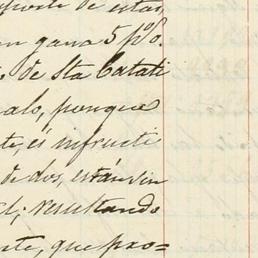 de estas
gana 5 p%.
de Sta Catali
malo, porque
te, és infructi
de dos, están sin
resultando
nte, que pro-